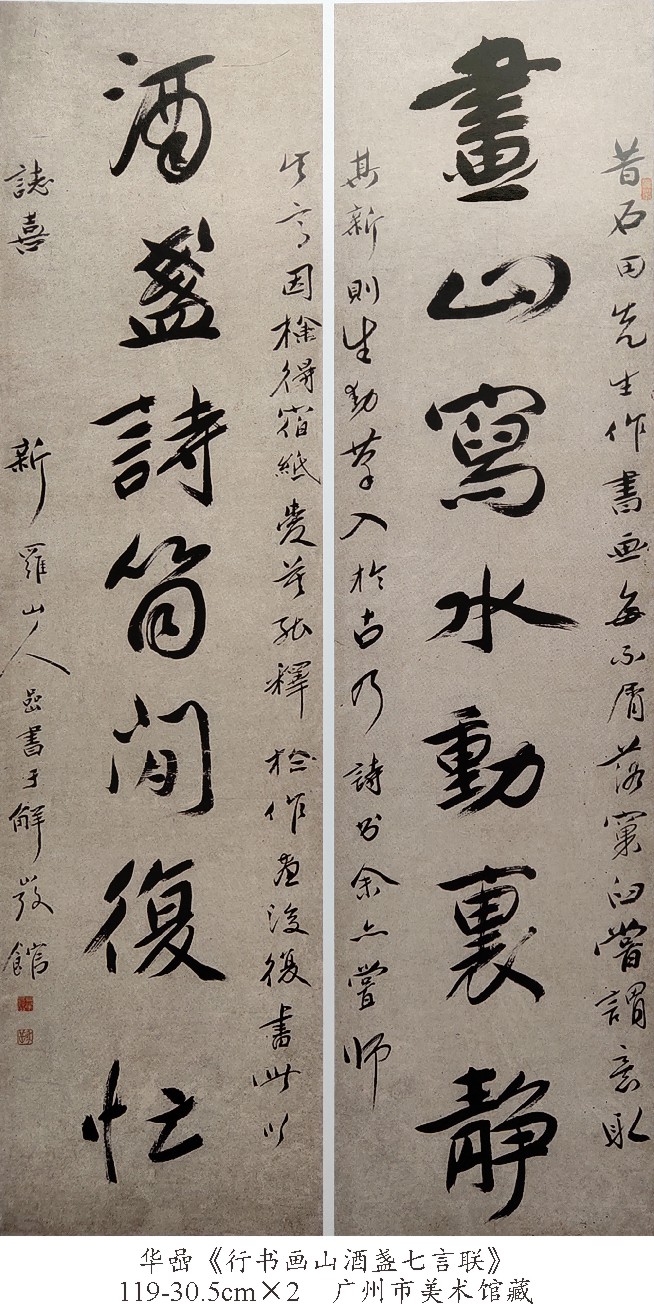 昔石田先生作書画每不屑落窠臼嘗謂意取
畫山寫水動裏静
其新則生動筆入於古乃詩余亦嘗師
其言因撿得宿紙愛莫能釋於作畫後復書此以
酒盞詩筒閒復忙
誌喜 新羅山人喦書于解弢館
华喦《行书画山酒盏七言联》
119-30.5cm×2 广州市美术馆藏